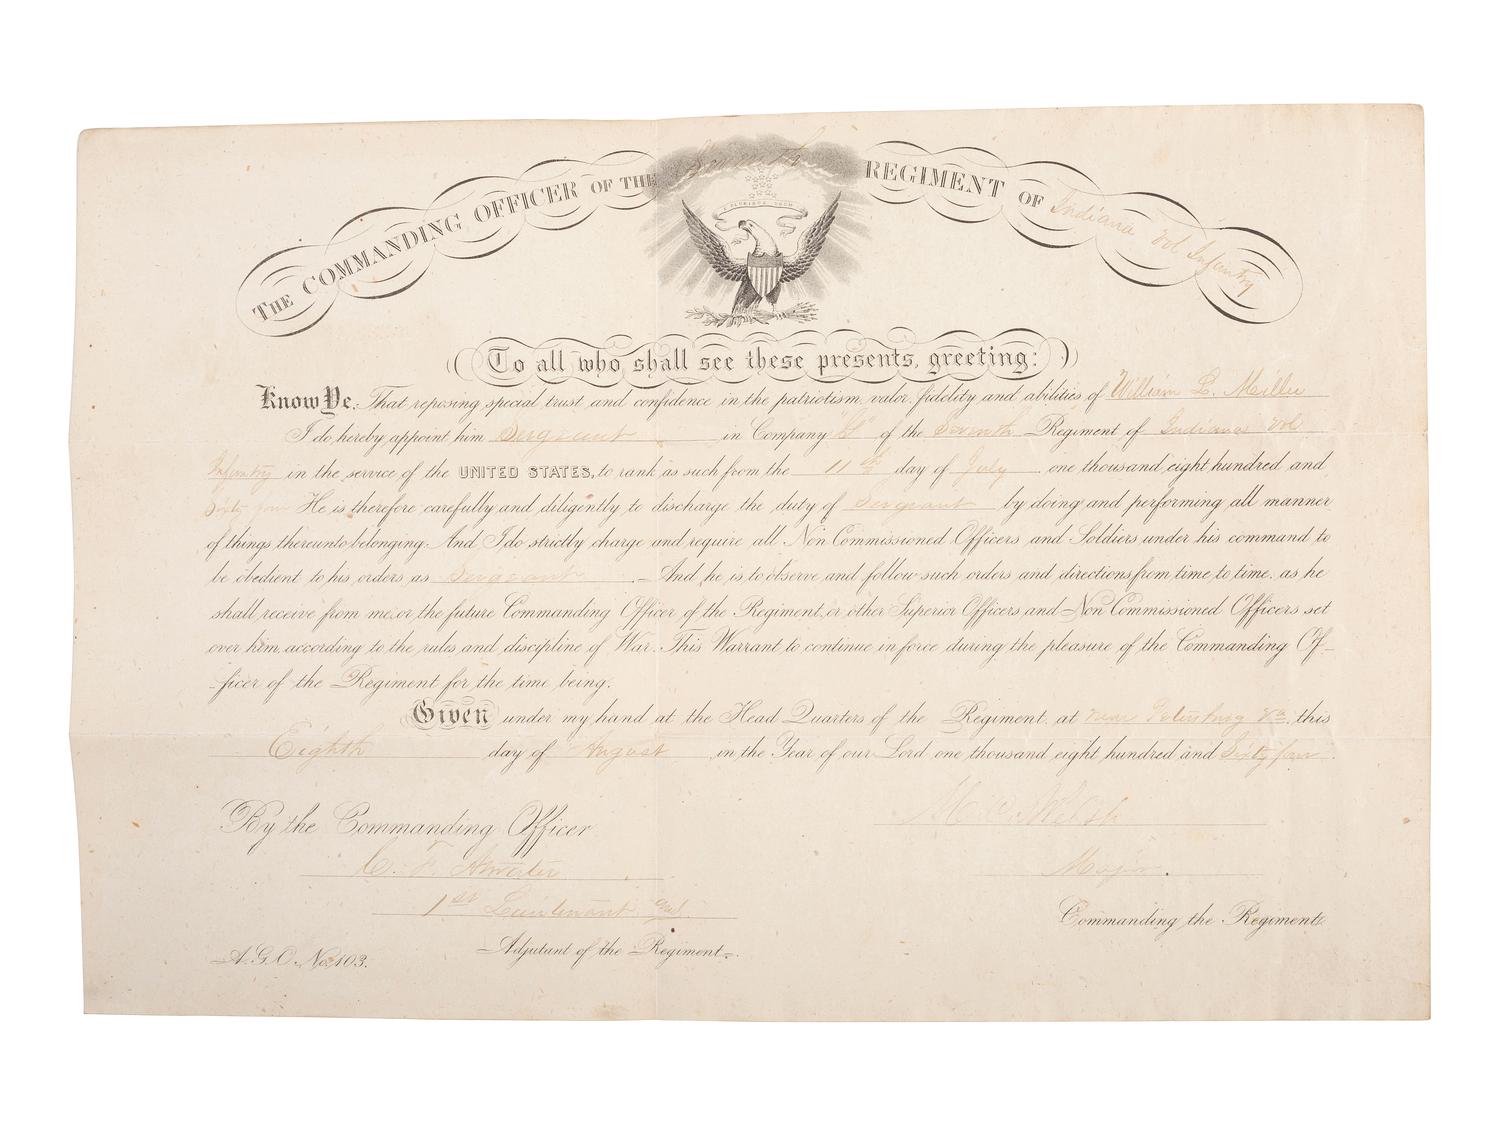 THE COMMANDING OFFICER OF THE Seventh REGIMENT OF Indiana Vol Infantry
E PLURIBUS UNUM
To all who shall see these presents, greeting:
Know Ye, That reposing special trust and confidence in the patriotism, valor, fidelity and abilities of William L. Miller
I do hereby appoint him Sergeant in Company of the Seventh Regiment of Indiana Vol
Infantry in the service of the UNITED STATES, to rank as such from the 11th day of July one thousand eight hundred and
Sixty four He is therefore carefully and diligently to discharge the duty of Sergeant by doing and performing all manner
of things thereunto belonging. And I do strictly charge and require all Non Commissioned Officers and Soldiers under his command to
be obedient to his orders as Sergeant. And he is to observe and follow such orders and directions from time to time, as he
shall receive from me, or the future Commanding Officer of the Regiment, or other Superior Officers and Non Commissioned Officers set
over him, according to the rules and discipline of War. This Warrant to continue in force during the pleasure of the Commanding Of-
-ficer of the Regiment for the time being.
Given under my hand at the Head Quarters of the Regiment, at near Petersburg Va, this
Eighth day of August in the Year of our Lord one thousand eight hundred and Sixty four.
M. C. Welsh
By the Commanding Officer
C. F. Atwater
Major.
1st Lieutenant and
Commanding the Regiment.
Adjutant of the Regiment.
A.G.O. No. 103.